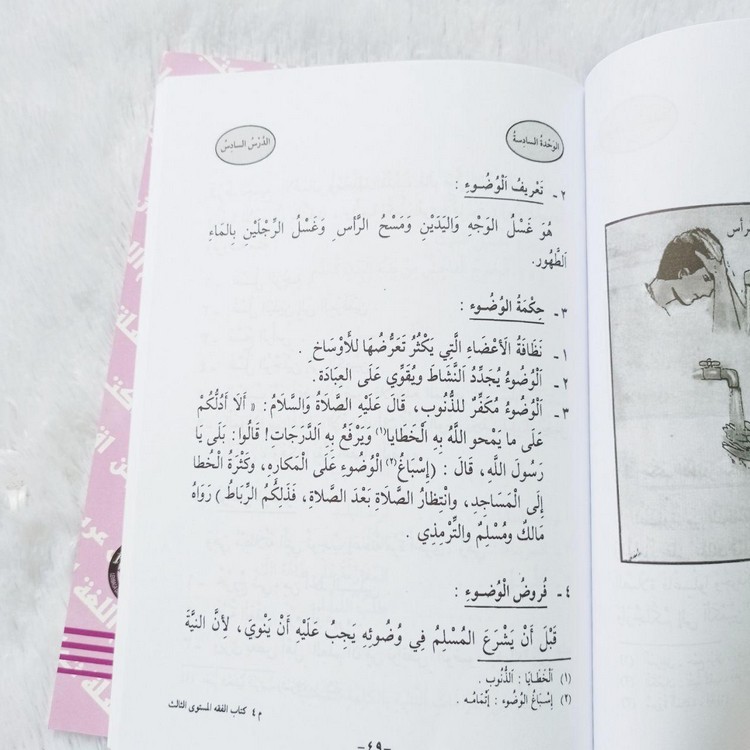 الوَحْدَةُ السادِسةُ
الدَّرْسُ السادِسْ
٢ ـ تَعْرِيفُ اَلْوُضُوءِ :
هُوَ غَسْلُ الوَجْهِ وَاليَدَيْنِ وَمَسْحُ الرَّأْسِ وَغَسْلُ الرِّجْلَيْنِ بِالمَاءِ
اَلطَّهُورِ.
٣ ـ حِكْمَةُ الوُضُوءِ :
١ ـ نَظَافَةُ الأَعْضَاءِ الَّتِي يَكْثُرُ تَعَرُّضُهَا لِلأَوْسَاخِ .
٢ ـ اَلْوُضُوءُ يُجَدِّدُ اَلنَّشَاطَ وَيُقَوِّي عَلَى العِبَادَةِ.
٣ ـ اَلْوُضُوءُ مُكَفِّرٌ لِلذُّنُوبِ، قَالَ عَلَيْهِ الصَّلَاةُ وَالسَّلَامُ: « أَلَا أَدُلُّكُمْ
عَلَى ما يَمْحو اللَّهُ بِهِ اَلْخَطايا(١) وَيَرْفَعُ بِهِ اَلدَّرَجَاتِ! قَالُوا: بَلَى يَا
رَسُولَ اللَّهِ، قَالَ : (إِسْبَاغُ(٢) الْوُضُوءِ عَلَى الْمَكارِهِ، وَكَثْرَةُ الْخُطا
إِلَى الْمَسَاجِدِ، وانْتِظَارُ الصَّلَاةِ بَعْدَ الصَّلَاةِ، فَذَلِكُمُ الرِّبَاطُ ) رَوَاهُ
مَالكٌ ومُسْلِمٌ والتِّرْمِذِي .
٤ ـ فُرُوضُ الْوُضُوءِ :
قَبْلَ أَنْ يَشْرَعَ المُسْلِمُ فِي وُضُوئِهِ يَجِبُ عَلَيْهِ أَنْ يَنْوِيَ، لِأَنَّ النِيَّةَ
(١) اَلْخَطَايَا : اَلذُّنُوب .
(٢) إِسْبَاغُ الوُضُوءِ : إِتْمَامُه .
م ٤ كتاب الفقه المستوى الثالث
ـ ٤٩ ـ